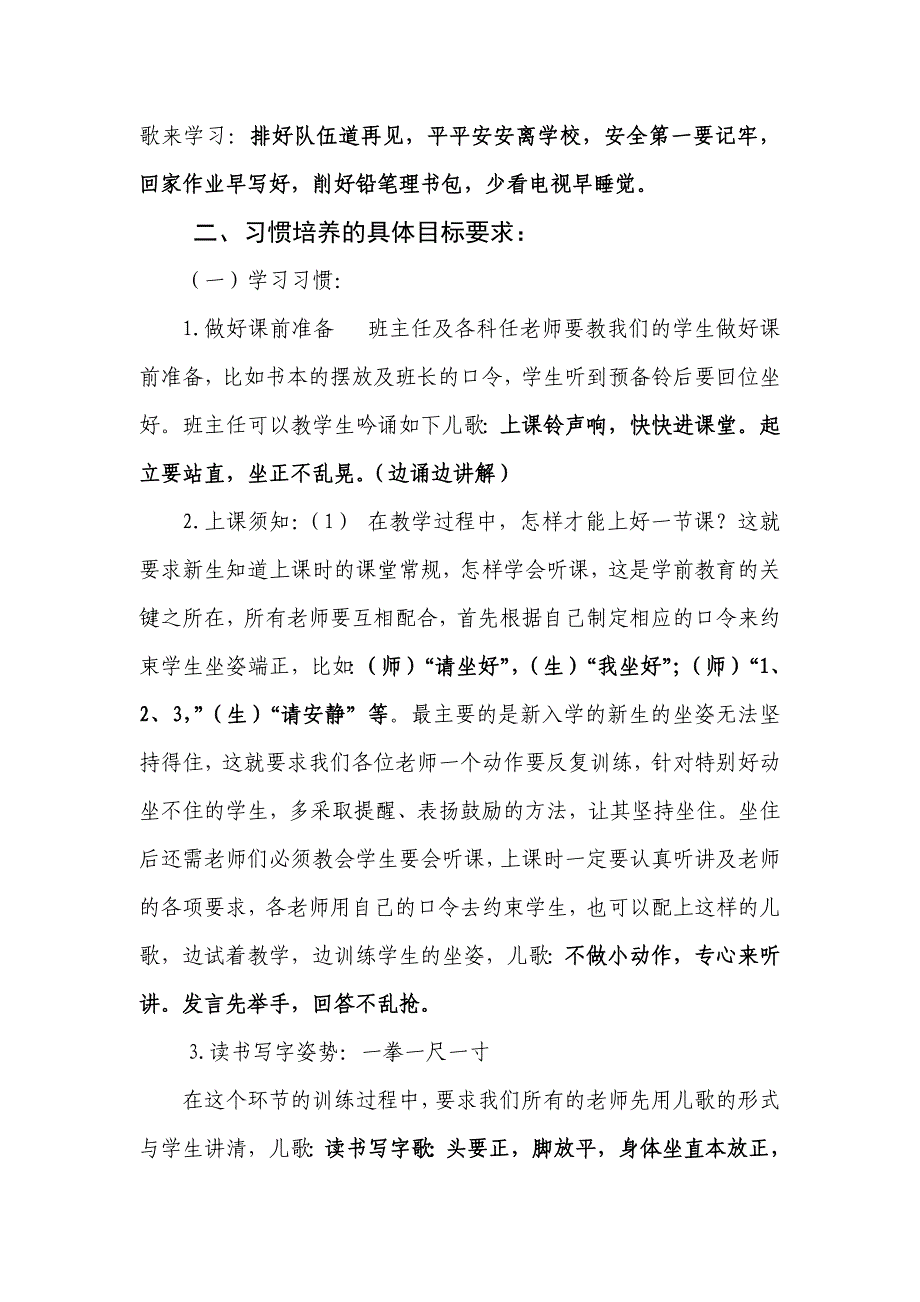 歌来学习：排好队伍道再见，平平安安离学校，安全第一要记牢，
回家作业早写好，削好铅笔理书包，少看电视早睡觉。
二、习惯培养的具体目标要求：
（一）学习习惯：
1.做好课前准备　班主任及各科任老师要教我们的学生做好课
前准备，比如书本的摆放及班长的口令，学生听到预备铃后要回位坐
好。班主任可以教学生吟诵如下儿歌：上课铃声响，快快进课堂。起
立要站直，坐正不乱晃。（边诵边讲解）
2.上课须知：（1） 在教学过程中，怎样才能上好一节课？这就
要求新生知道上课时的课堂常规，怎样学会听课，这是学前教育的关
键之所在，所有老师要互相配合，首先根据自己制定相应的口令来约
束学生坐姿端正，比如：（师）“请坐好”，（生）“我坐好”；（师）“1、
2、3，”（生）“请安静” 等。最主要的是新入学的新生的坐姿无法坚
持得住，这就要求我们各位老师一个动作要反复训练，针对特别好动
坐不住的学生，多采取提醒、表扬鼓励的方法，让其坚持坐住。坐住
后还需老师们必须教会学生要会听课，上课时一定要认真听讲及老师
的各项要求，各老师用自己的口令去约束学生，也可以配上这样的儿
歌，边试着教学，边训练学生的坐姿，儿歌：不做小动作，专心来听
讲。发言先举手，回答不乱抢。
3.读书写字姿势：一拳一尺一寸
在这个环节的训练过程中，要求我们所有的老师先用儿歌的形式
与学生讲清，儿歌：读书写字歌：头要正，脚放平，身体坐直本放正，